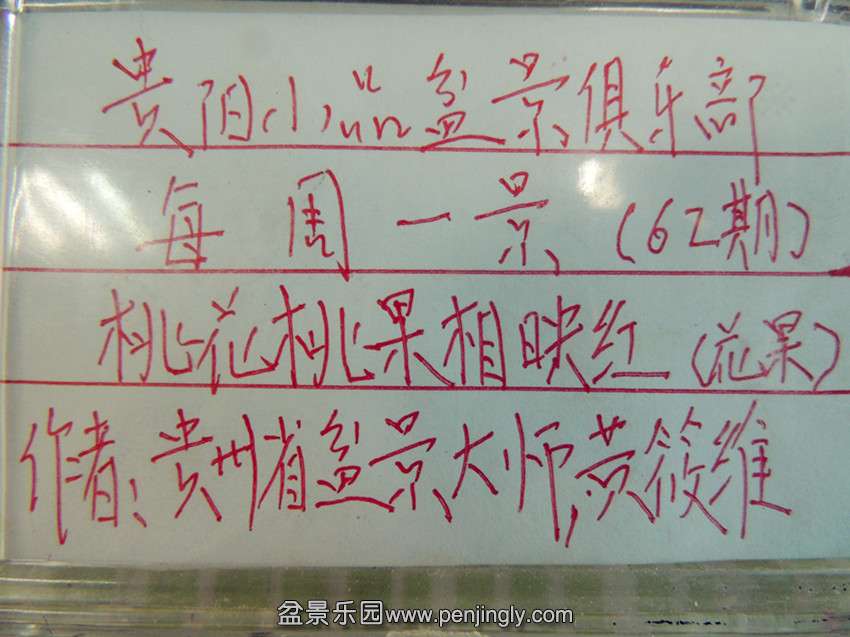 贵阳小品盆景俱乐部
每周一景(62期)
桃花桃果相映红(花果)
作者:贵州省盆景大师,黄筱维
盆景乐园www.penjingly.com